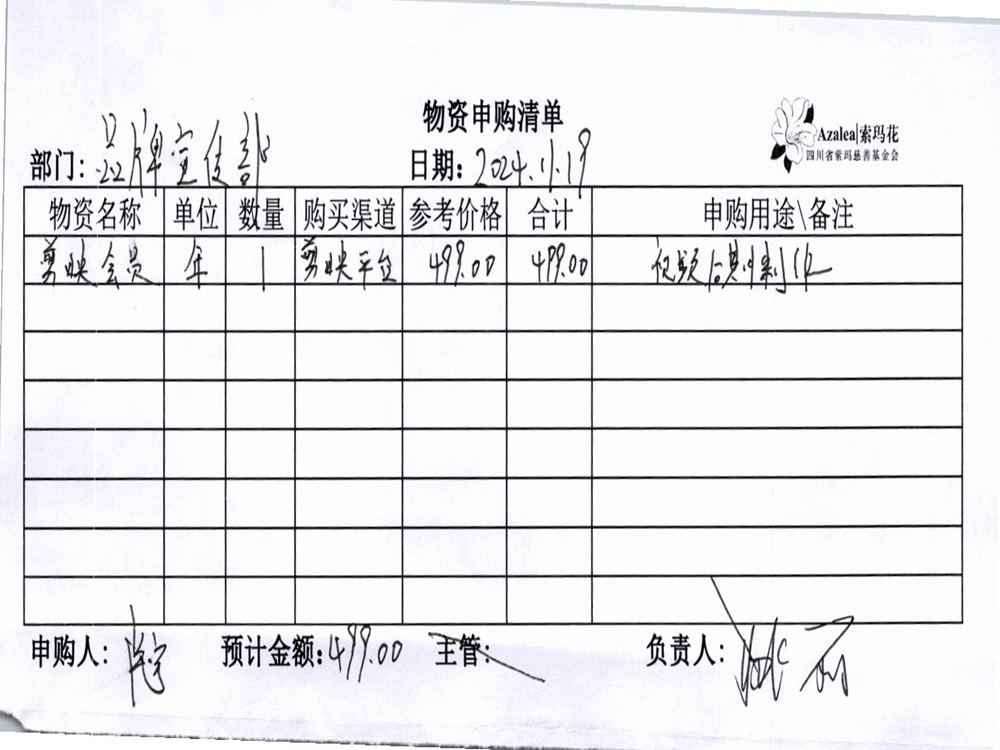 物资申购清单
Azalea|索玛花
四川省索玛慈善基金会
部门: 品牌宣传部 日期: 2024.11.19
物资名称 单位 数量 购买渠道 参考价格 合计 申购用途\备注
剪映会员 年 1 剪映平台 499.00 499.00 视频后期制作
申购人: 预计金额: 499.00 主管: 负责人: